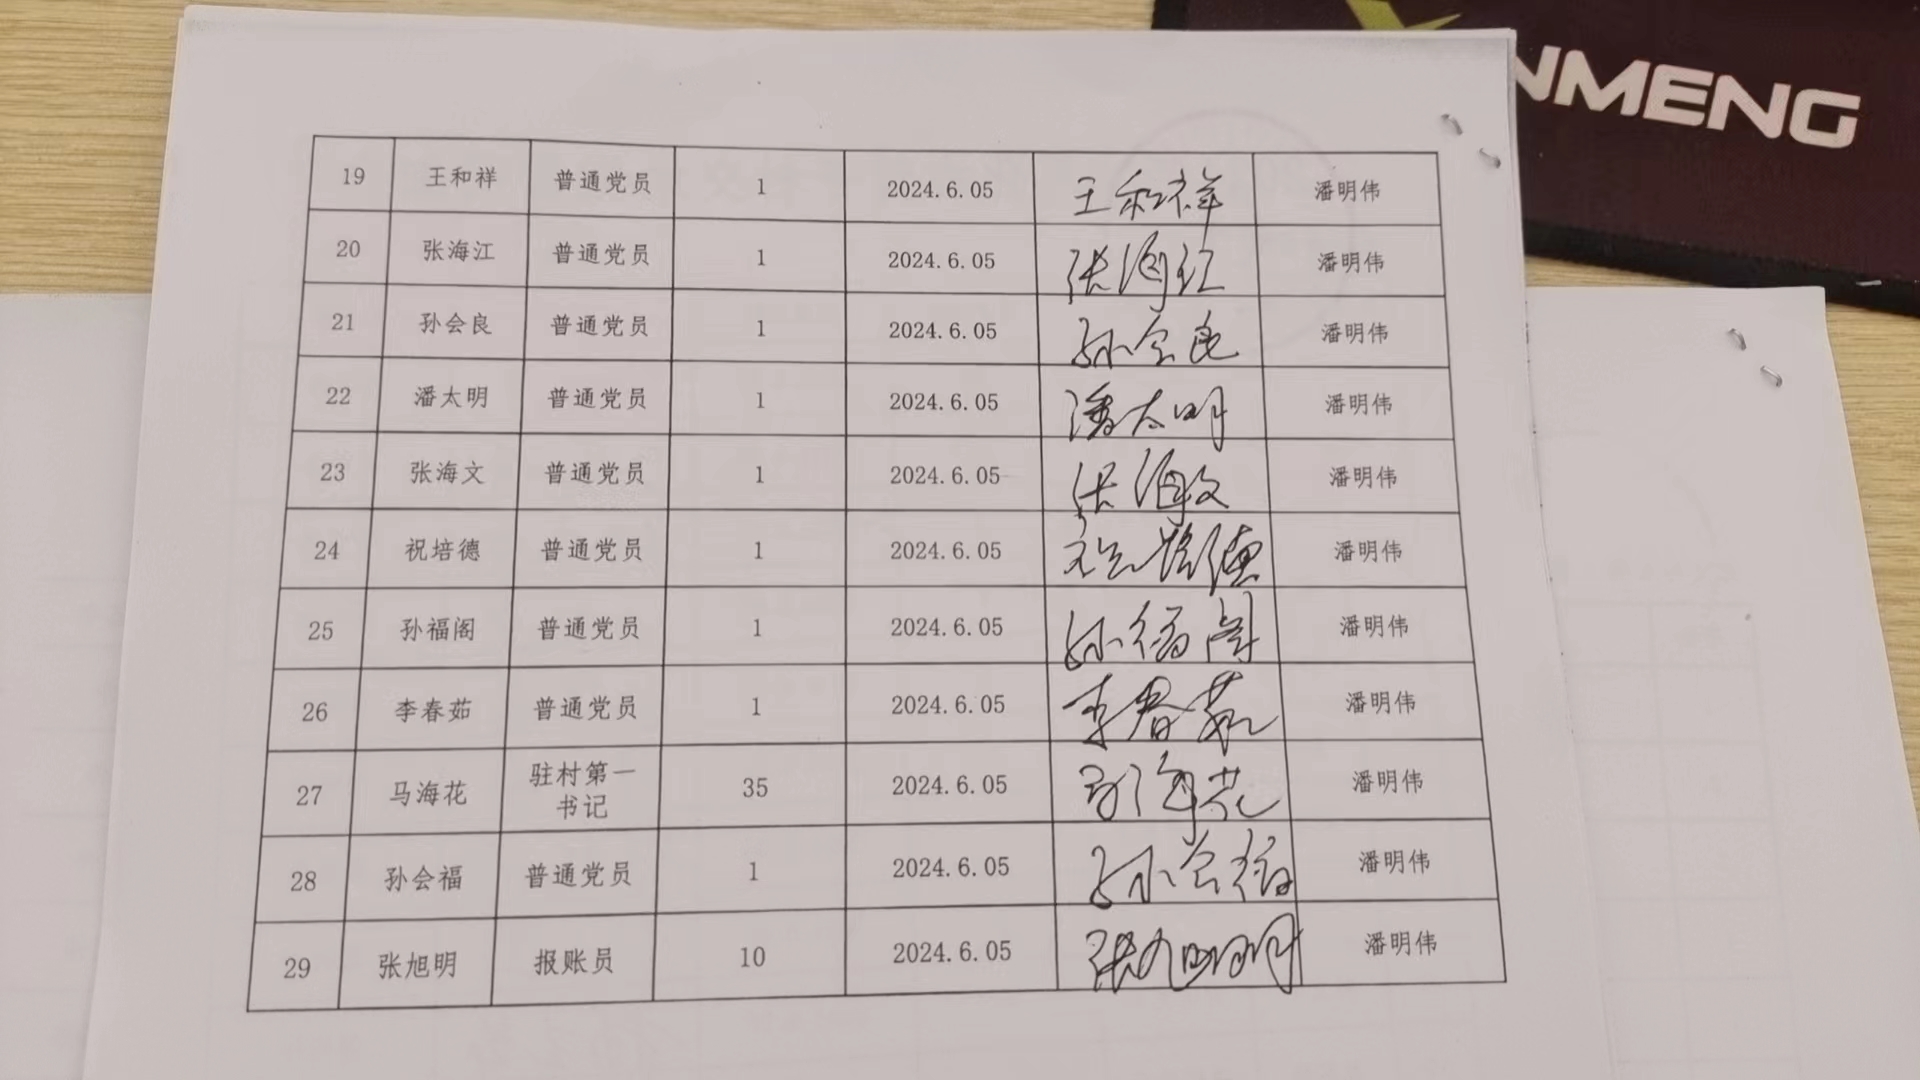 NMENG
19 王和祥 普通党员 1 2024.6.05 王和祥 潘明伟
20 张海江 普通党员 1 2024.6.05 张海江 潘明伟
21 孙会良 普通党员 1 2024.6.05 孙会良 潘明伟
22 潘太明 普通党员 1 2024.6.05 潘太明 潘明伟
23 张海文 普通党员 1 2024.6.05 张海文 潘明伟
24 祝培德 普通党员 1 2024.6.05 祝培德 潘明伟
25 孙福阁 普通党员 1 2024.6.05 孙福阁 潘明伟
26 李春茹 普通党员 1 2024.6.05 李春茹 潘明伟
27 马海花 驻村第一
书记 35 2024.6.05 马海花 潘明伟
28 孙会福 普通党员 1 2024.6.05 孙会福 潘明伟
29 张旭明 报账员 10 2024.6.05 张旭明 潘明伟